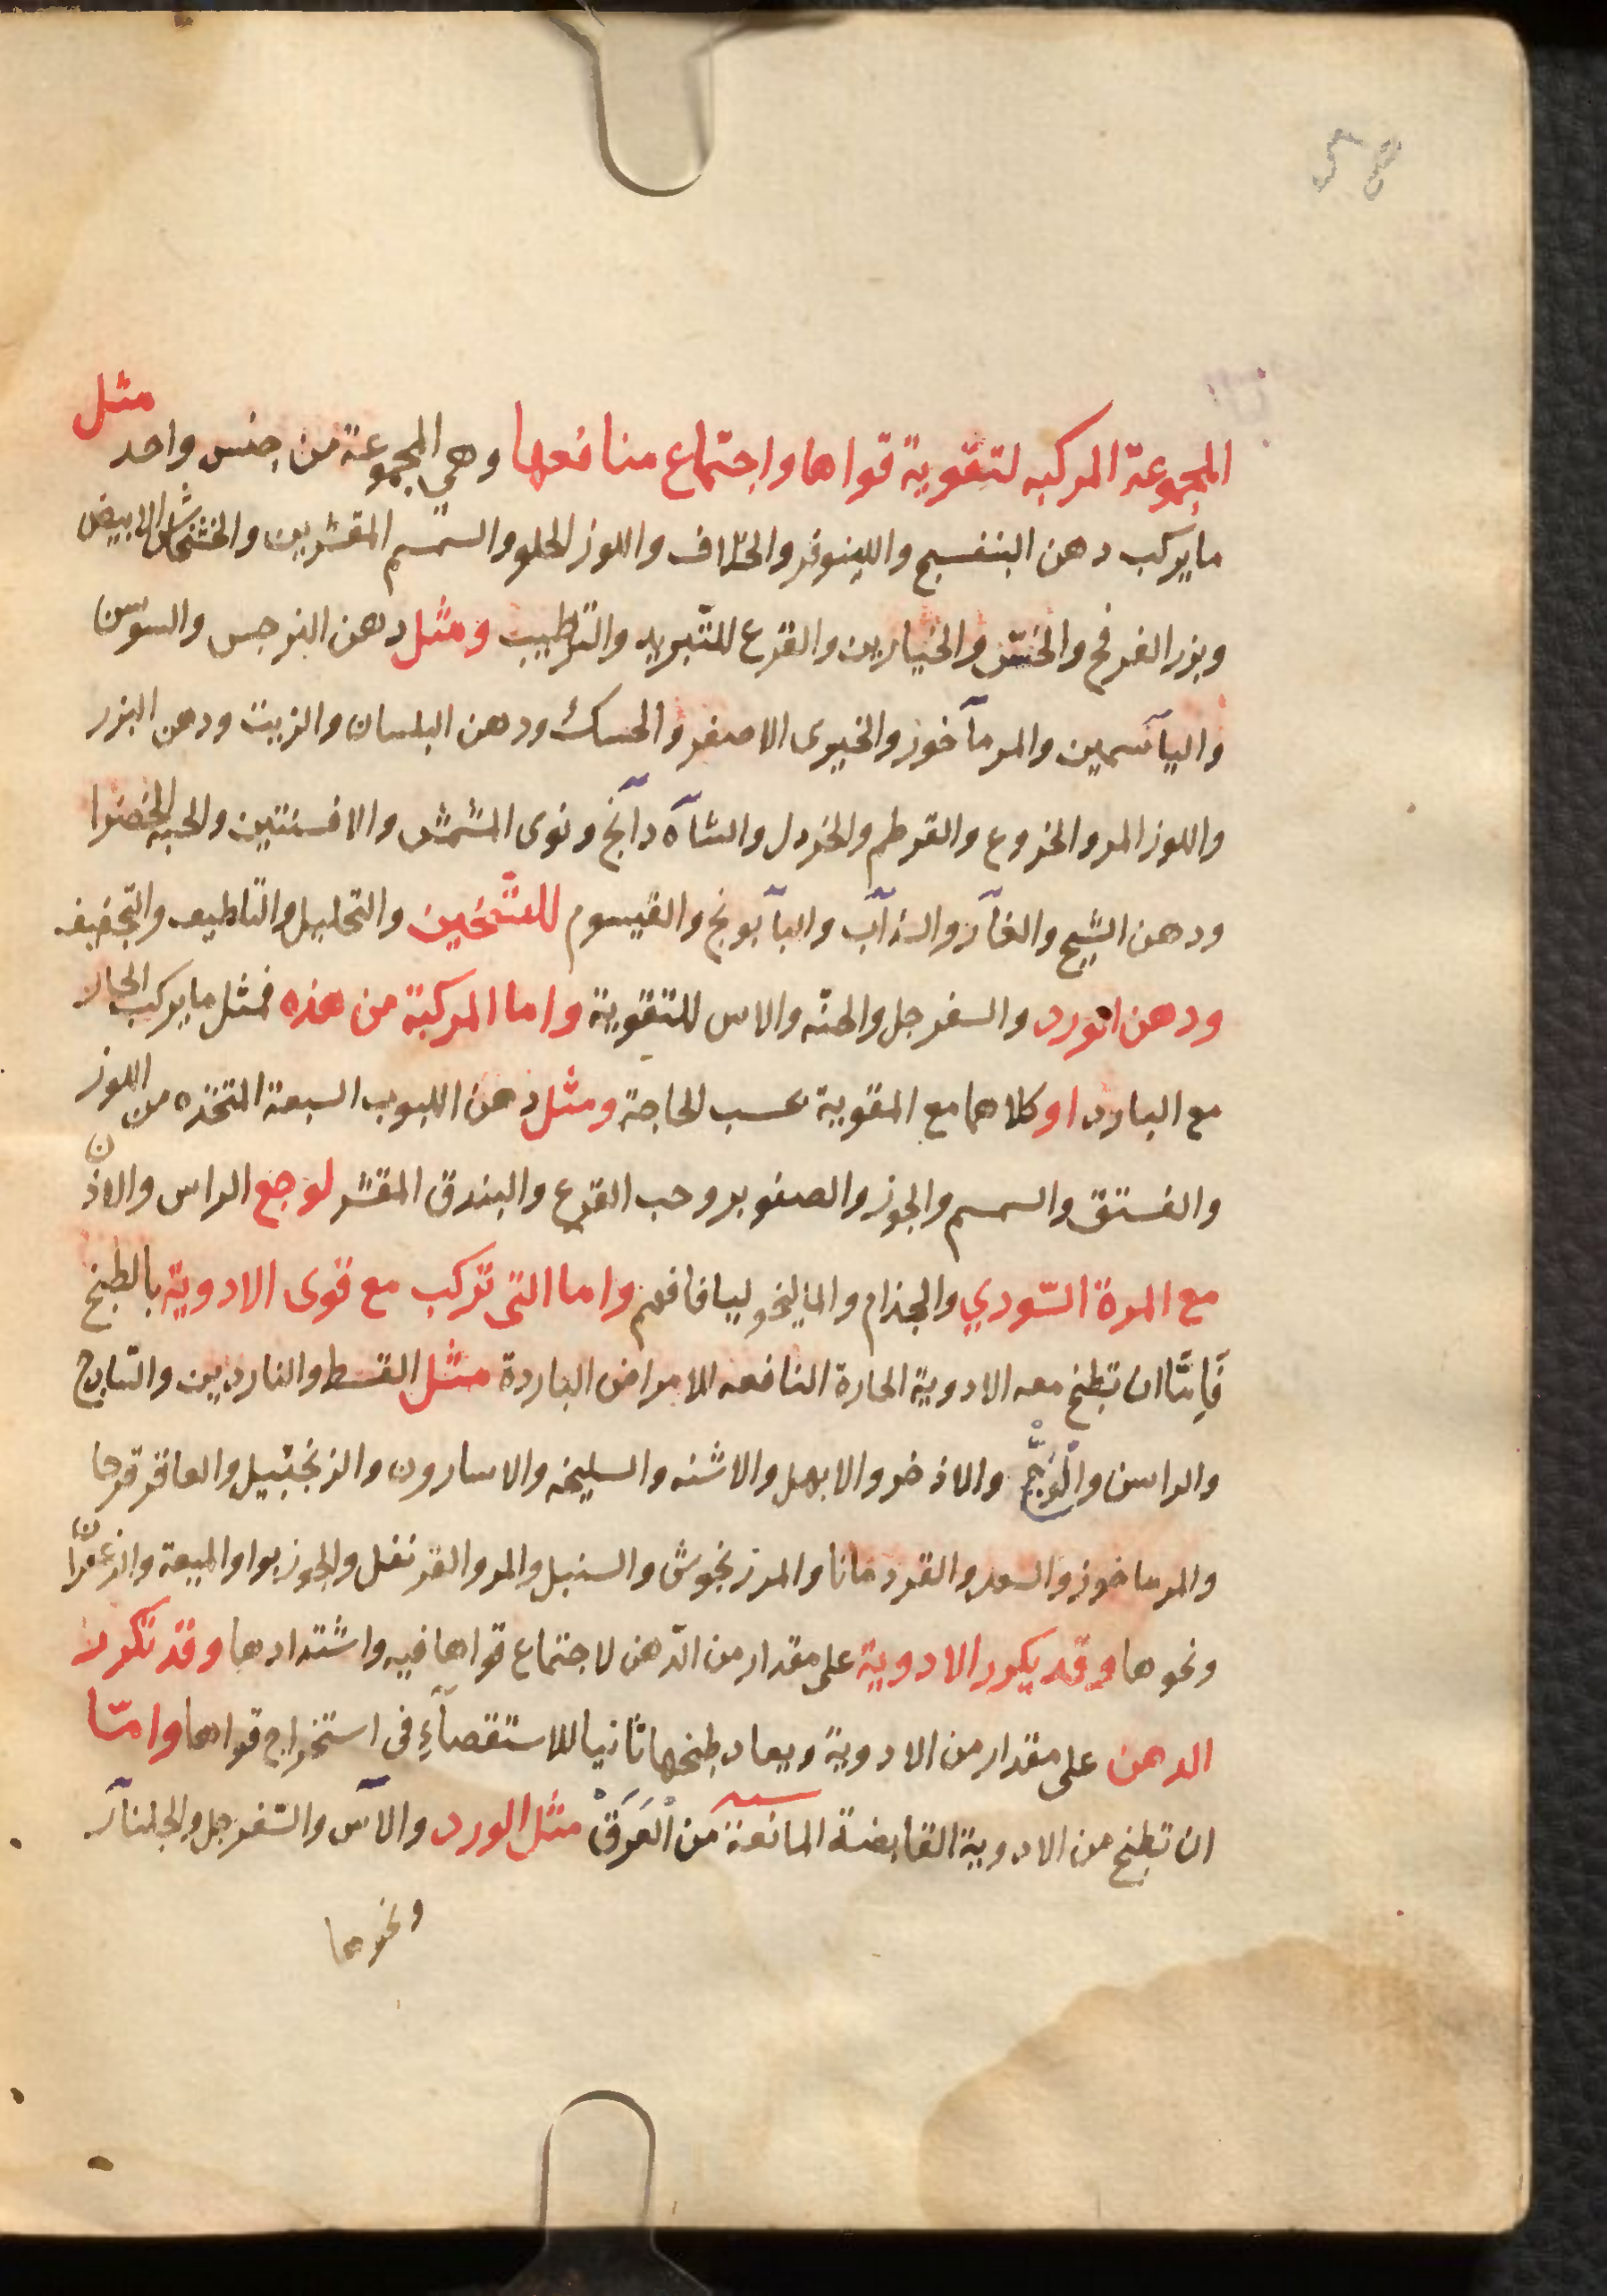 58
المجموعة المركبه لتقوية قواها واجتماع منافعها وهي المجموعة من جنس واحد مثل
ما يركب دهن البنفسج واللينوفر والخلاف واللوز الحلو والسمسم المقشرين والخشخاش الابيض
وبزر الفرفخ والخس والخيارين والقرع للتبريد والترطيب ومثل دهن النرجس والسوسن
والياسمين والمرماخوز والخيرى الاصفر والحسك ودهن البلسان والزيت ودهن البزر
واللوز المر والخروع والقرطم والخردل والشاه دانج ونوى المشمش والافسنتين والحبه الخضرا
ودهن الشيح والغار والسذاب والبابونج والقيسوم للتسخين والتحليل والتلطيف والتجفيف
ودهن الورد والسفرجل والحنه والاس للتقوية واما المركبة من هذه فمثل ما يركب الحار
مع البارد او كلاهما مع المقوية بحسب الحاجة ومثل دهن اللبوب السبعة المتخذه من اللوز
والفستق والسمسم والجوز والصنوبر وحب القرع والبندق المقشر لوجع الراس والاذن
مع المرة السودي والجذام والماليخوليا فافهم واما التى تركب مع قوى الادوية بالطبخ
فإمّا ان تطبخ معه الادوية الحارة النافعه للامراض الباردة مثل القسط والناردين والسادج
والراسن والوَجّ والاذخر والابهل والاشنه والسليخه والاسارون والزنجبيل والعاقرقرحا
والمرماخوز والسعد والقردمانا والمرزنجوش والسنبل والمر والقرنفل والجوز بوا والميعة والزعفران
ونحوها وقد يكرر الادوية على مقدار من الدّهن لاجتماع قواها فيه واشتدادها وقد تكرر
الدهن على مقدار من الادوية ويعاد طبخها ثانيا للاستقصآءِ فى استخراج قواها وامّا
ان تطبخ من الادوية القابضة المانعة من الْعَرَقْ مثل الورد والآس والسّفرجل والجلنآر
ونحوها